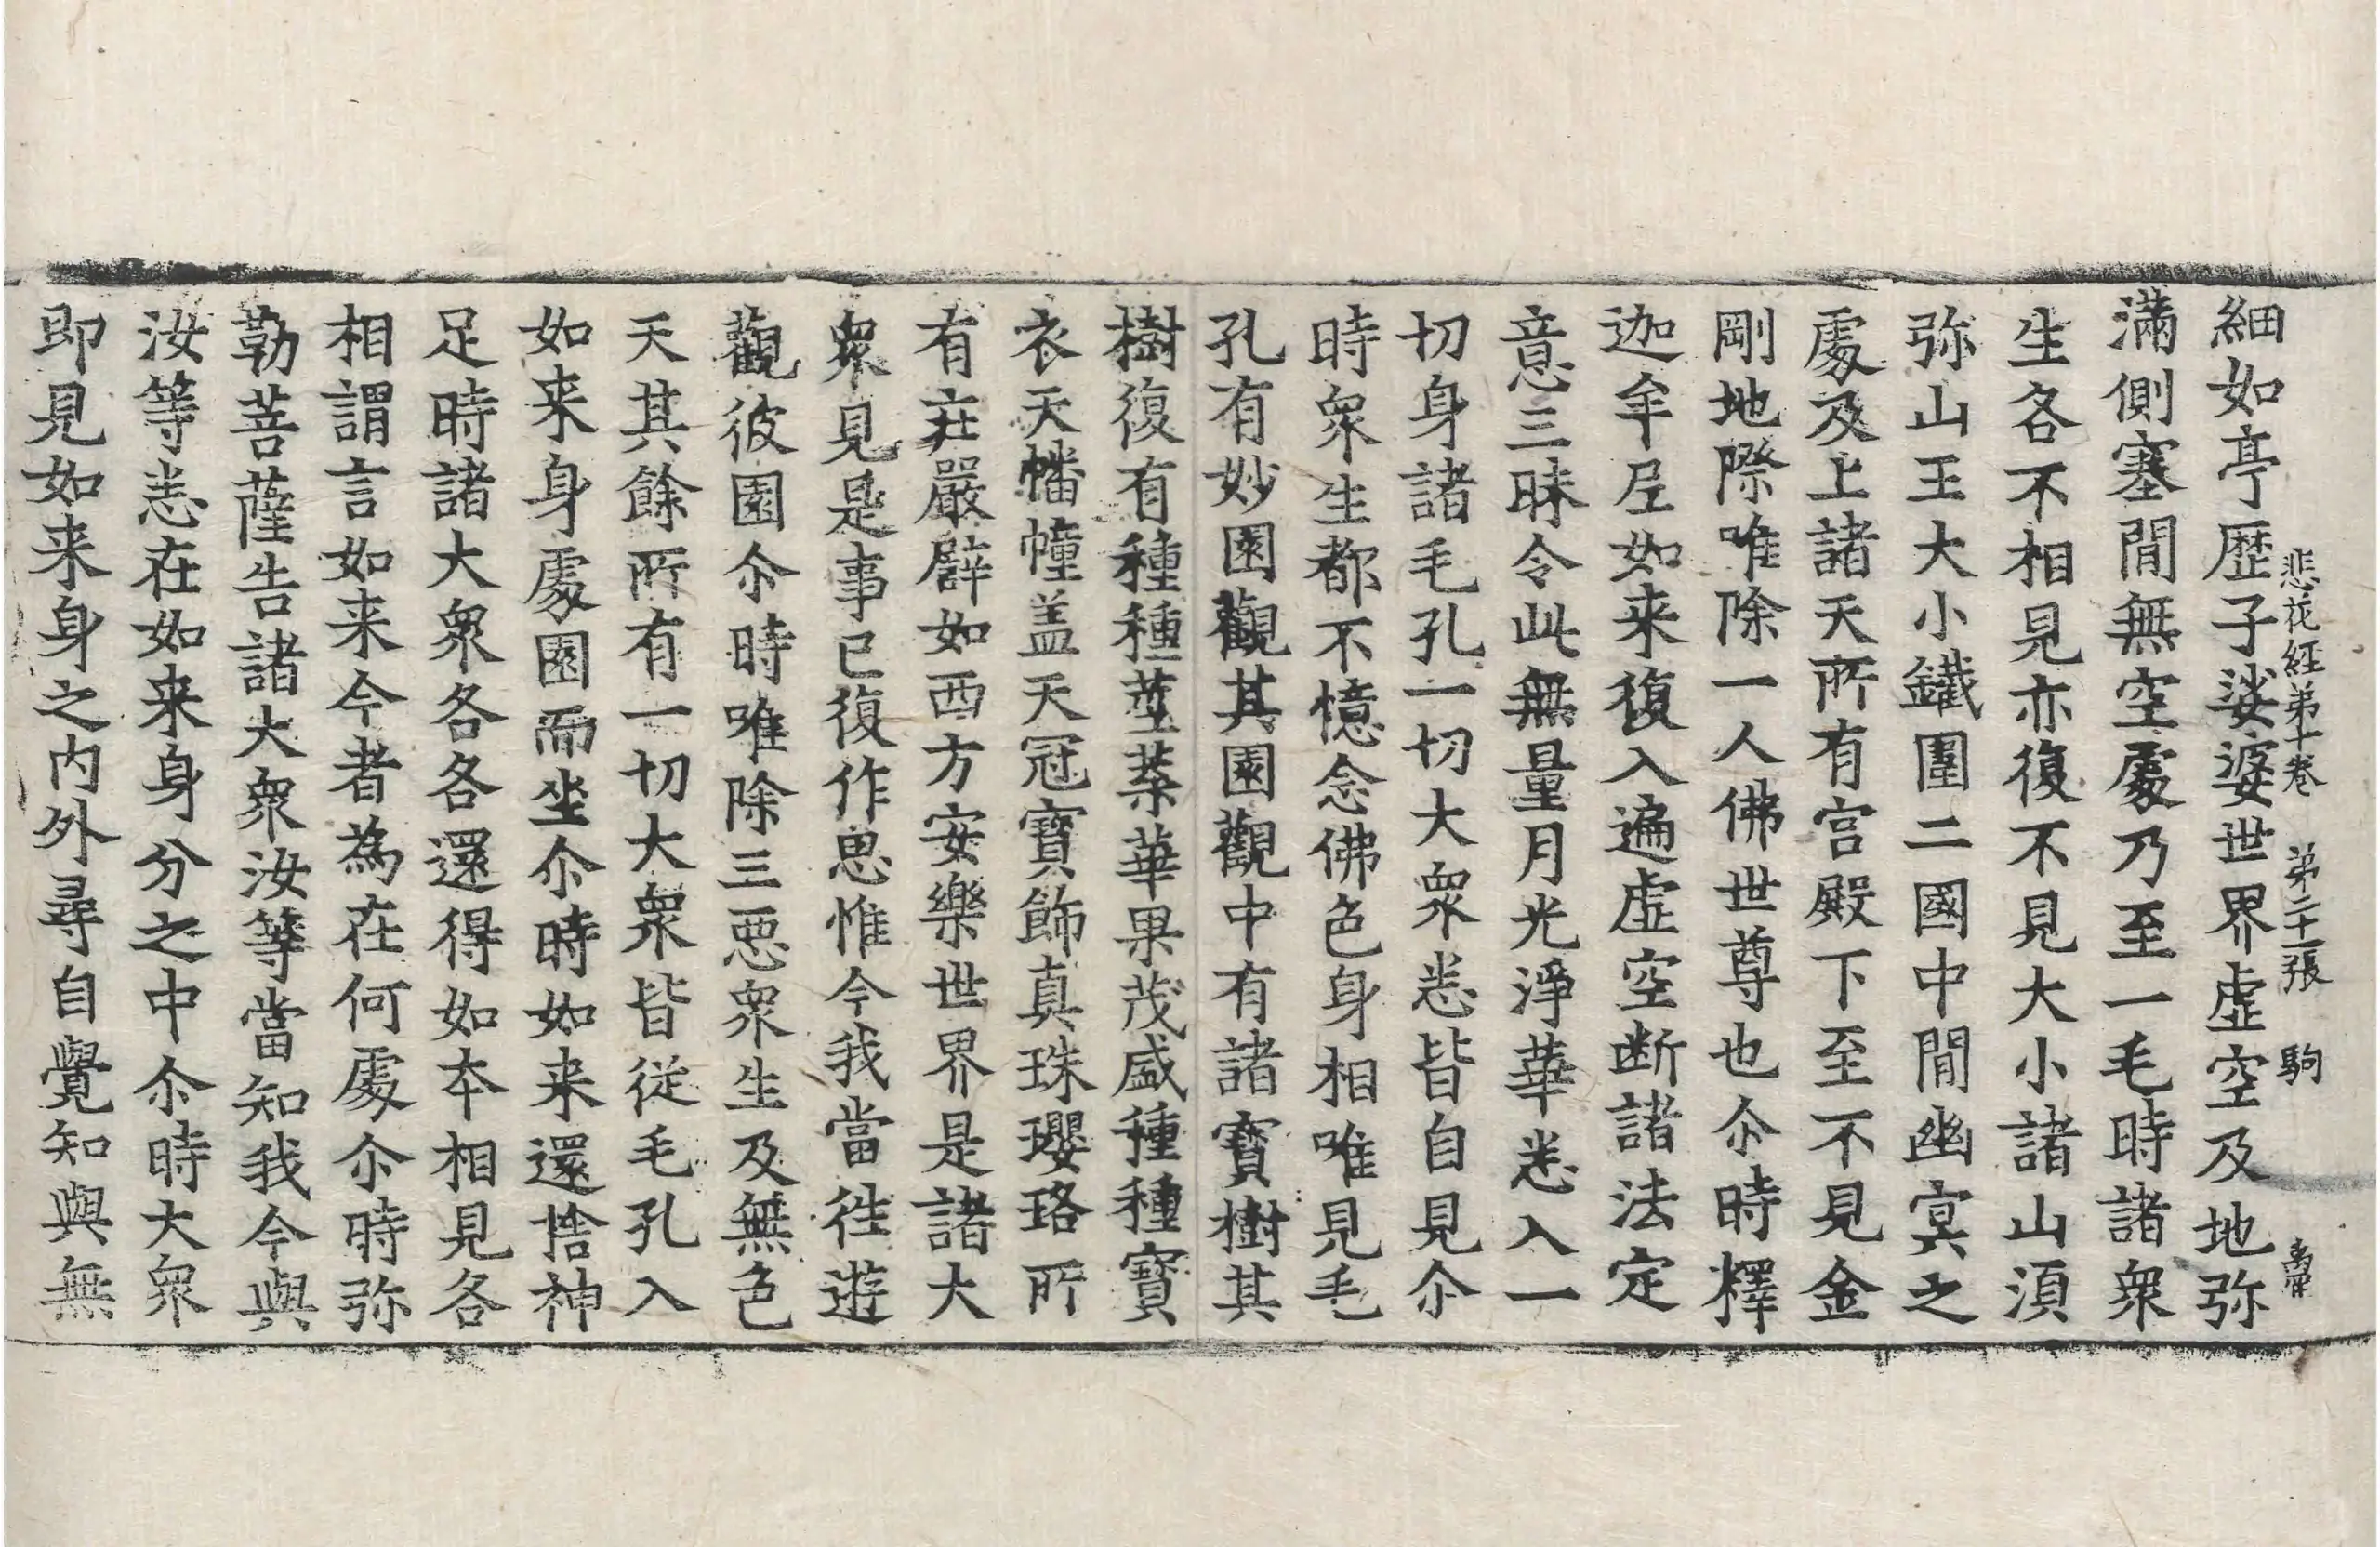 悲花経弟十卷 弟二十一張 駒
細如亭歷子娑婆世界虛空及地弥
滿側塞間無空處乃至一毛時諸衆
生各不相見亦復不見大小諸山湏
弥山王大小鐵圍二國中間幽冥之
處及上諸天所有宮殿下至不見金
剛地際唯除一人佛世尊也尒時釋
迦牟尼如来復入遍虛空断諸法定
意三昧令此無量月光淨華悉入一
切身諸毛孔一切大衆悉皆自見尒
時衆生都不憶念佛色身相唯見毛
孔有妙園觀其園觀中有諸寶樹其
樹復有種種莖葉華果茂盛種種寶
衣天幡幢盖天冠寶飾真珠瓔珞所
有庄嚴譬如西方安樂世界是諸大
衆見是事已復作思惟今我當往遊
觀彼園尒時唯除三惡衆生及無色
天其餘所有一切大衆皆從毛孔入
如来身處園而坐尒時如来還捨神
足時諸大衆各各還得如本相見各
相謂言如来今者為在何處尒時弥
勒菩薩告諸大衆汝等當知我今與
汝等悉在如来身分之中尒時大衆
即見如来身之内外尋自覺知與無